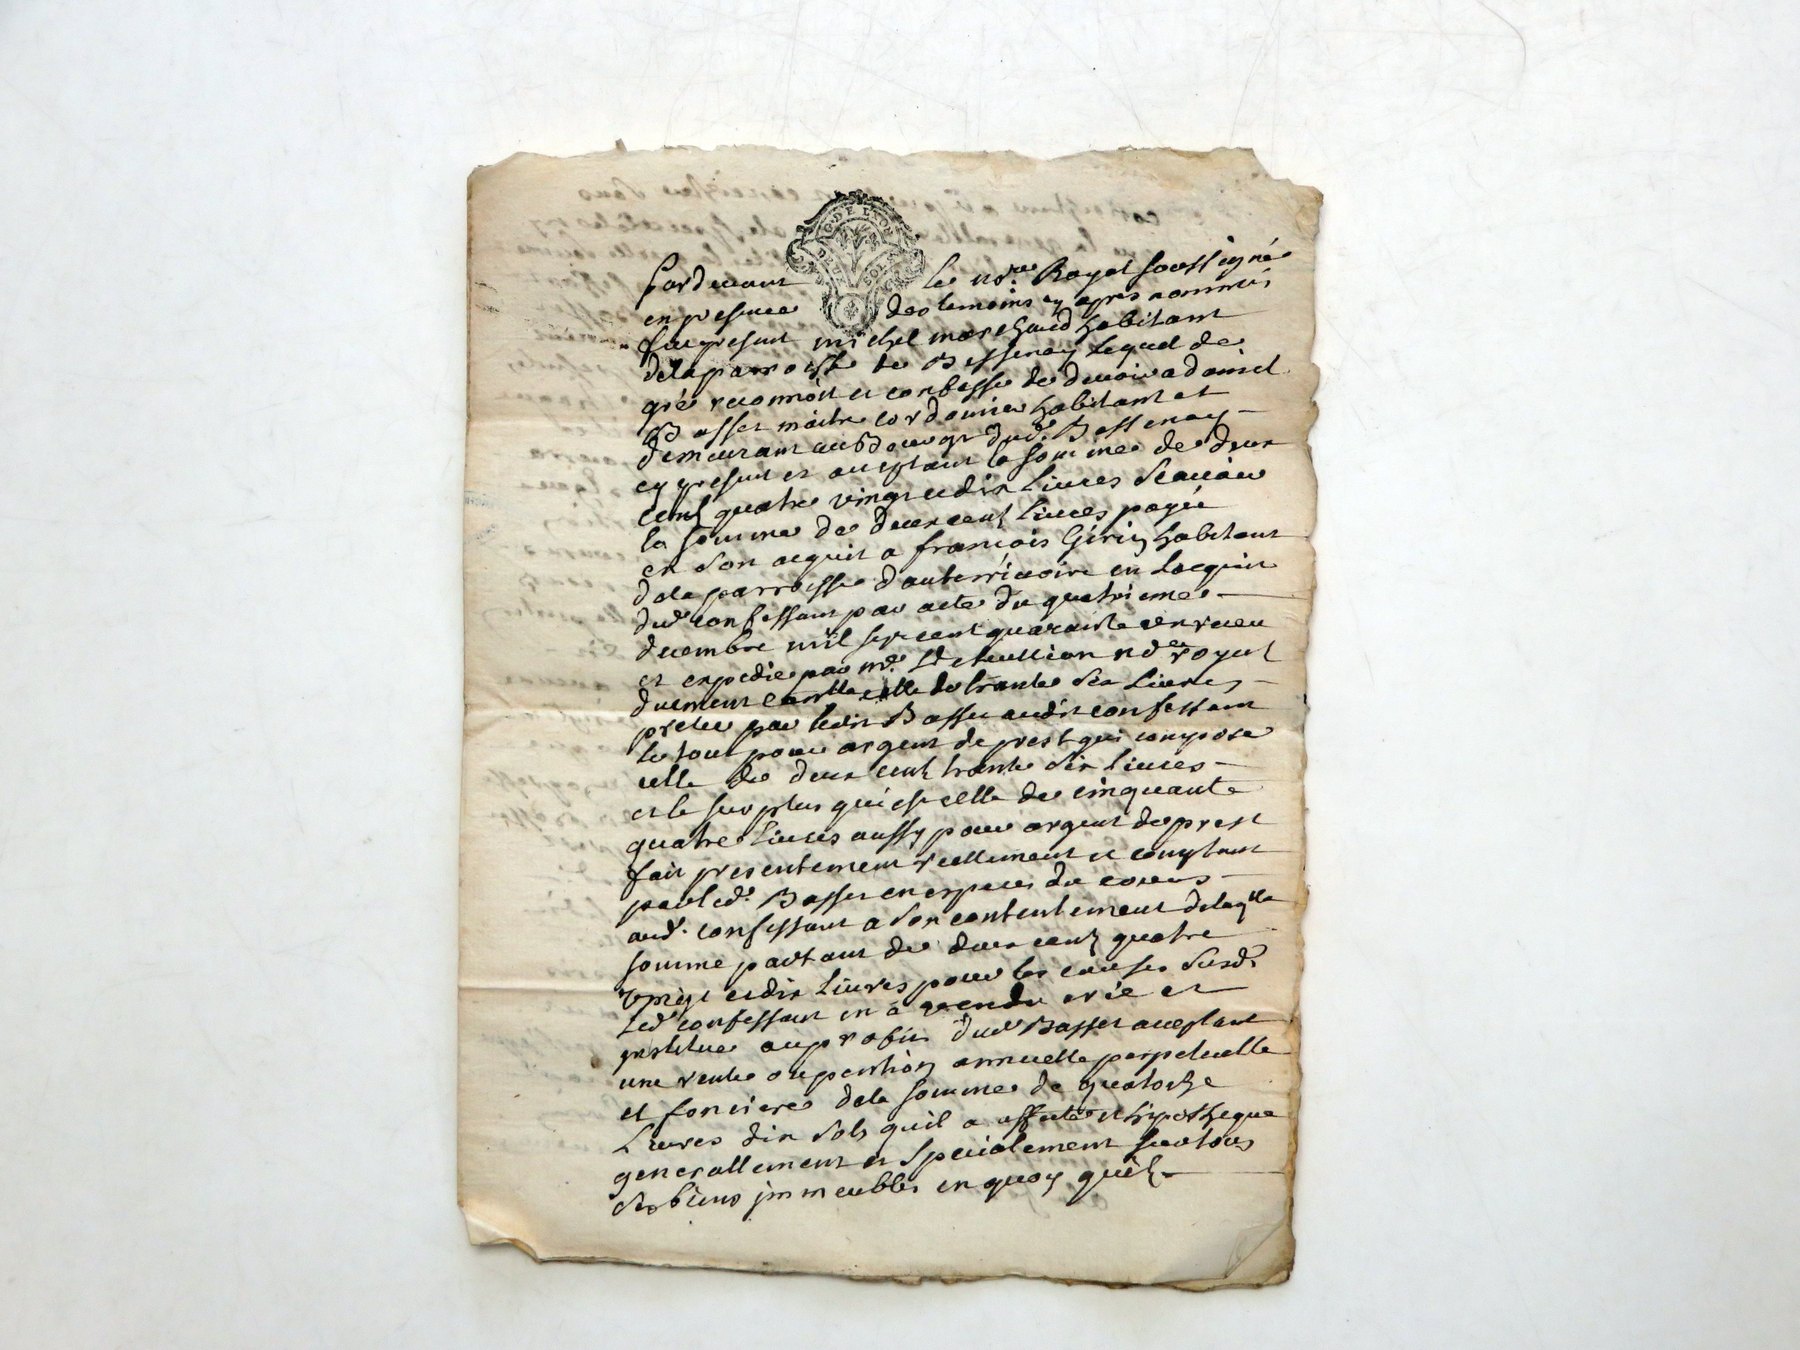 G. DE LYON
DEUX SOLS
Pardevant le no.re Royal soussigné
en presence des temoins cy apres nommés
fut present michel marchand habitant
dela parroisse de Bessenay lequel de
gré reconnoit et confesse de devoir a daniel
Basset maitre cordonnier habitant et
demeurant au Bourg dud. Bessenay
cy present et acceptant la somme de deux
cent quatre vingt et dix livres scavoir
la somme de deux cent livres payée
en son acquit a francois Girin habitant
dela parroisse dauterivoire en lacquit
dud confessant par acte du quatrieme
decembre mil sept cent quarante
et expedié par me. nore royal
duement celle de trente six livres
pretée par ledit Basset audit confessant
le tout pour argent de prest qui compose
celle de deux cent trente six livres
et le surplus qui est celle de cinquante
quatre livres aussy pour argent de prest
fait presentement reellement et comptant
par led. Basset en especes du cours
aud. confessant a son contentement delaqlle
somme partant de deux cent quatre
vingt et dix livres pour les causes susd.
led confessant en a vendu crée et
institué au profit dud Basset acceptant
une rente ou pention annuelle perpetuelle
et fonciere dela somme de quatorze
livres dix sols quil a affecté et hypotheque
generallement et specialement sur tous
ses biens immeubles en quoy quils